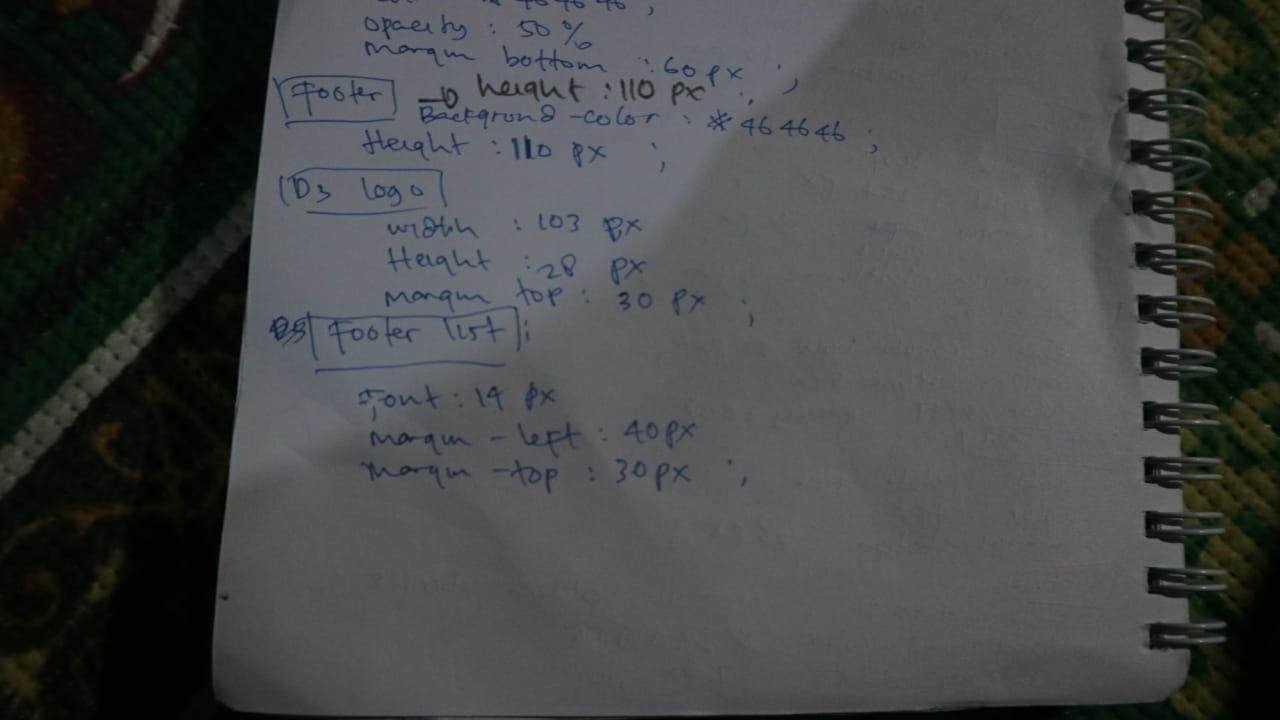 464646 ;
opacity : 50 %
margin bottom : 60 px ;
Footer → height : 110 px ;
Background -color : * 464646 ;
Height : 110 px ;
Ds logo
width : 103 px
Height : 28 px
margin top : 30 px ;
Footer list :
Font : 14 px
margin - left : 40px
margin -top : 30px ;